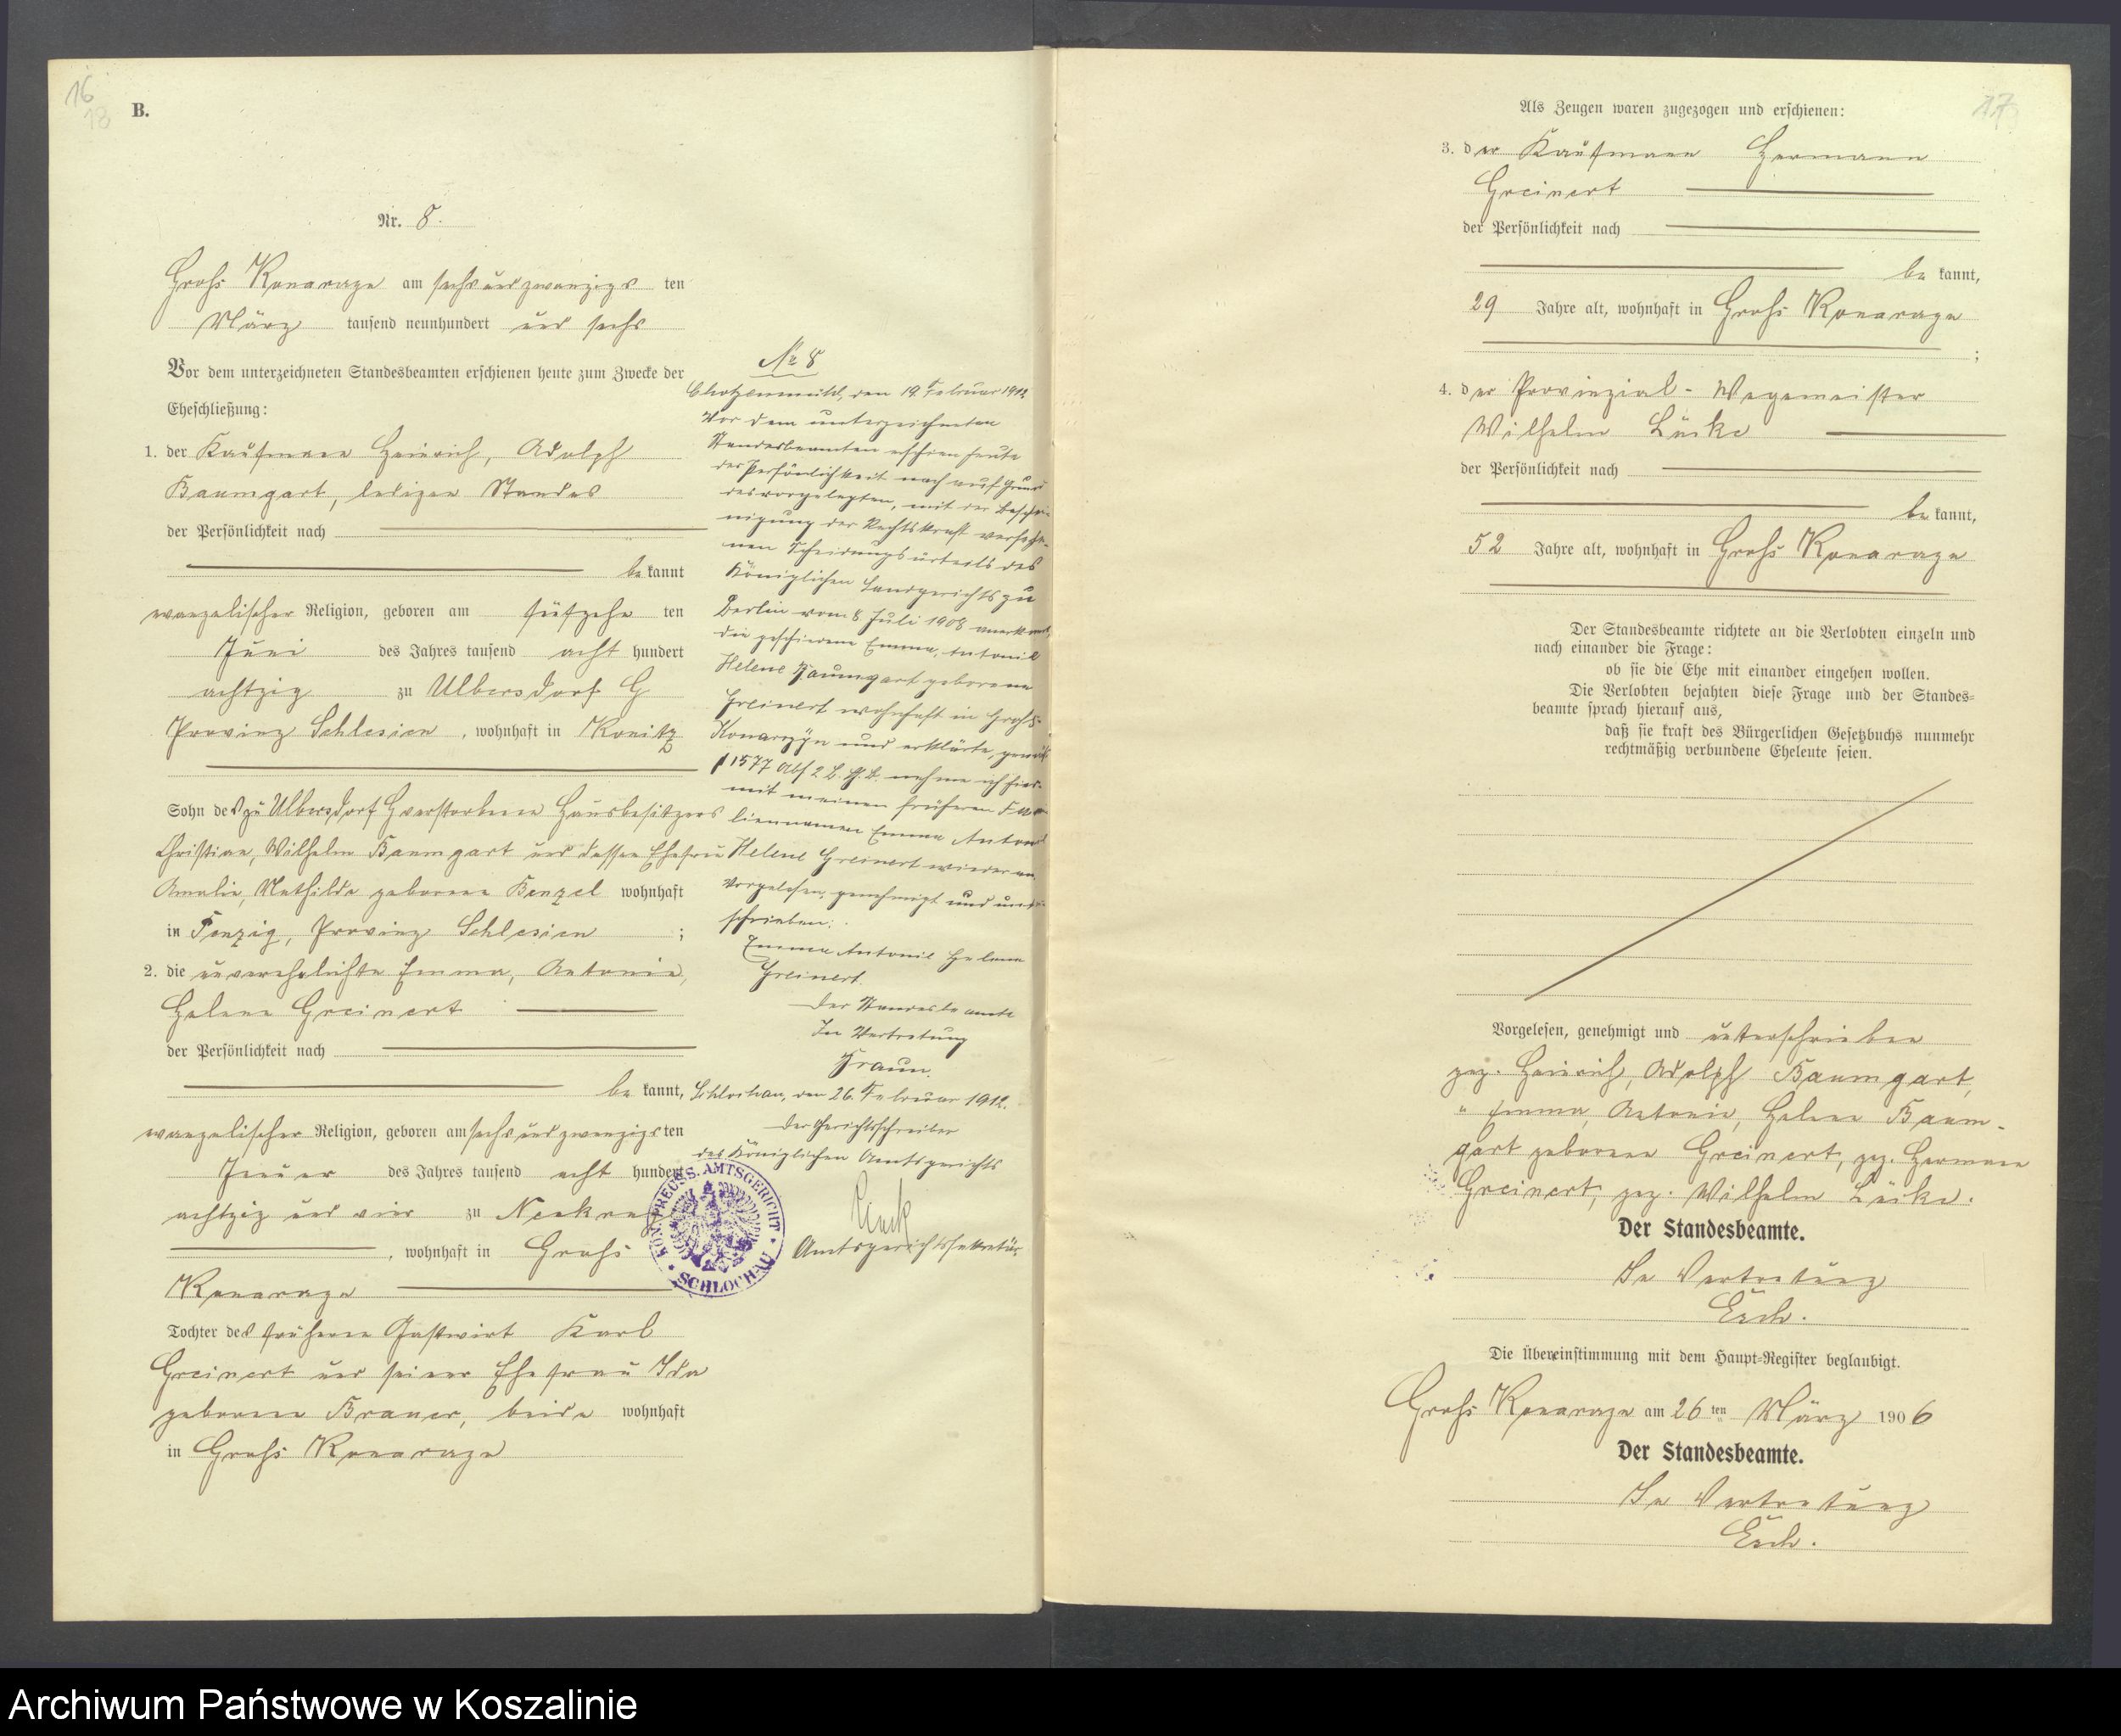 16
18
B.
Nr. 8.
Groß Konarczyn am sechsundzwanzigs ten
März tausend neunhundert und sechs
Vor dem unterzeichneten Standesbeamten erschienen heute zum Zwecke der
Eheschließung:
1. der Kaufmann Heinrich, Adolph
Baumgart, ledigen Standes
der Persönlichkeit nach
be kannt
evangelischer Religion, geboren am fünfzehn ten
Juni des Jahres tausend acht hundert
achtzig zu Ulbersdorf G
Provinz Schlesien, wohnhaft in Konitz
Sohn des zu Ulbersdorf G verstorbenen Hausbesitzers
Christian, Wilhelm Baumgart und dessen Ehefrau
Amalie, Mathilde geborene Benzel wohnhaft
in Penzig, Provinz Schlesien ;
2. die unverehelichte Emma, Antonie,
Helene Greinert
der Persönlichkeit nach
be kannt,
evangelischer Religion, geboren am sechsundzwanzigs ten
Januar des Jahres tausend acht hundert
achtzig und vier zu
, wohnhaft in Groß
Konarczyn
Tochter des früheren Gastwirt Karl
Greinert und seiner Ehefrau Ida
geborene Brauer, beide wohnhaft
in Groß Konarczyn
No 8
den 19. Februar 1912
Vor dem unterzeichneten
Standesbeamten erschien heute
der Persönlichkeit nach auf Grund
des vorgelegten, mit der Beschei-
nigung der Rechtskraft versehe-
nen Scheidungsurteils des
Königlichen Landgerichts zu
Berlin vom 8 Juli 1908 anerkannt,
die geschiedene Emma, Antonie
Helene Baumgart geborene
Greinert wohnhaft in Groß-
Konarzyn und erklärte, gemäß
§ 1577 Abs 2 B. G. B. nehme ich hier-
mit meinen früheren Fami-
liennamen Emma Antonie
Helene Greinert wieder an.
Vorgelesen, genehmigt und unter-
schrieben:
Emma Antonie Helene
Greinert.
Der Standesbeamte
In Vertretung
Braun.
Schlochau, den 26. Februar 1912.
Der Gerichtsschreiber
des Königlichen Amtsgerichts
KÖN. PREUSS. AMTSGERICHT
SCHLOCHAU
Amtsgerichtssekretär
17
Als Zeugen waren zugezogen und erschienen:
3. der Kaufmann Hermann
Greinert
der Persönlichkeit nach
be kannt,
29 Jahre alt, wohnhaft in Groß Konarczyn
;
4. der Provinzial-Wegemeister
Wilhelm Lücke
der Persönlichkeit nach
be kannt,
52 Jahre alt, wohnhaft in Groß Konarczyn
Der Standesbeamte richtete an die Verlobten einzeln und
nach einander die Frage:
ob sie die Ehe mit einander eingehen wollen.
Die Verlobten bejahten diese Frage und der Standes=
beamte sprach hierauf aus,
daß sie kraft des Bürgerlichen Gesetzbuchs nunmehr
rechtmäßig verbundene Eheleute seien.
Vorgelesen, genehmigt und unterschrieben
gez. Heinrich, Adolph Baumgart,
" Emma, Antonie, Helene Baum-
gart geborene Greinert, gez. Hermann
Greinert, gez. Wilhelm Lücke.
Der Standesbeamte.
In Vertretung
Die Übereinstimmung mit dem Haupt=Register beglaubigt.
Groß Konarczyn am 26 ten März 1906
Der Standesbeamte.
In Vertretung
Archiwum Państwowe w Koszalinie